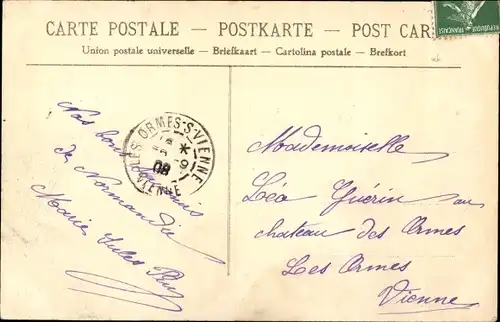 CARTE POSTALE — POSTKARTE — POST CAR
Union postale universelle — Briefkaart — Cartolina postale — Brefkort
REPUBLIQUE FRANÇAISE
LES ORMES-S-VIENNE
VIENNE
08
Nos bons
de Normandie
Marie Jules
Mademoiselle
Léa Guérin au
chateau des Ormes
Les Ormes
Vienne